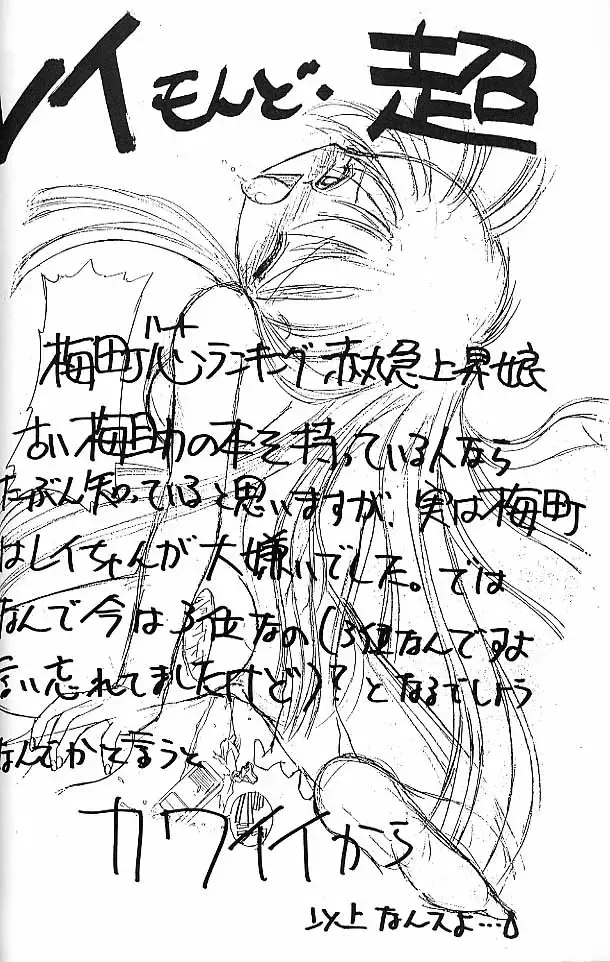 レイもんど・超
梅町ハート芯ランキング赤丸急上昇娘
古い梅町の本を持っている人なら
たぶん知っていると思いますが、実は梅町
はレイちゃんが大嫌いでした。では
なんで今は3位なの(3位なんですよ
言い忘れてましたけど)?となるでしょう
なんでかと言うと
カワイイから
以上なんスよ…。